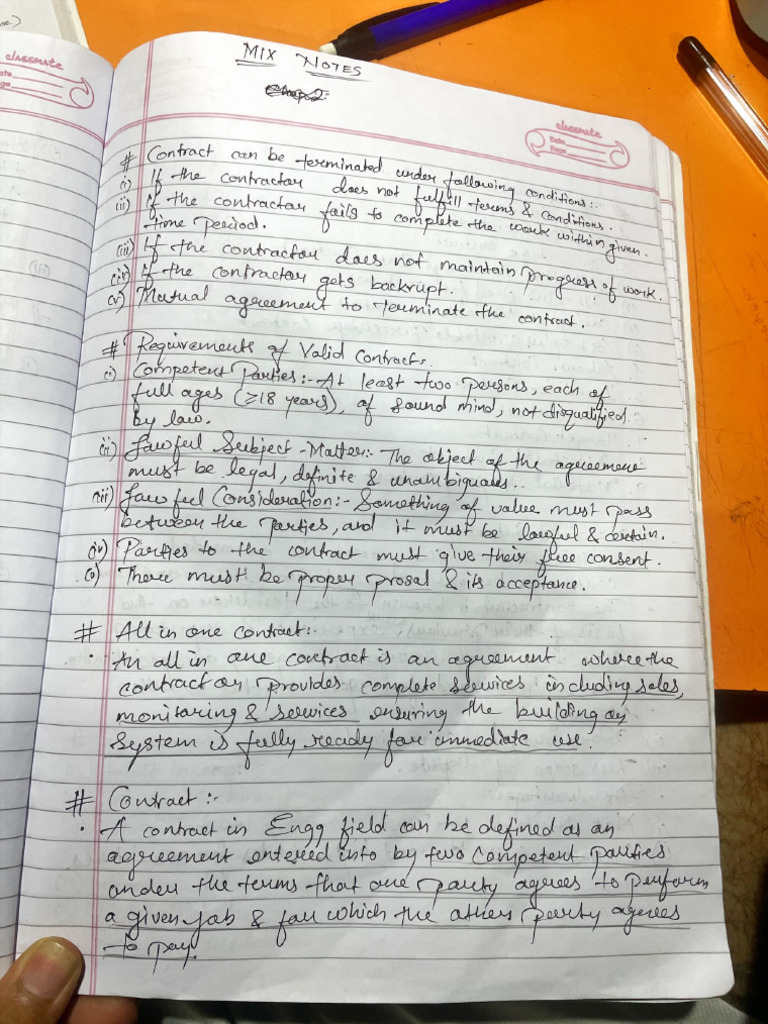 se.)
classmate
Date
Page
MIX NOTES
classmate
Date
Page
# Contract can be terminated under following conditions:-
(i) If the contractor does not fulfill terms & conditions.
(ii) If the contractor fails to complete the work within given.
time period.
(iii) If the contractor does not maintain progress of work.
(iv) If the contractor gets backrupt.
(v) Mutual agreement to terminate the contract.
# Requirements of Valid Contract:
(i) Competent Parties:- At least two persons, each of
full ages (≥18 years), of sound mind, not disqualified
by law.
(ii) Lawful Subject-Matter:- The object of the agreement
must be legal, definite & unambiguous.
(iii) Lawful Consideration:- Something of value must pass
between the parties, and it must be lawful & certain.
(iv) Parties to the contract must give their free consent.
(v) There must be proper prosal & its acceptance.
# All in one contract:-
. An all in one contract is an agreement where the
contractor provides complete services including sales,
monitoring & services ensuring the building or
system is fully ready for immediate use.
# Contract :-
. A contract in Engg field can be defined as an
agreement entered into by two competent parties
under the terms that one party agrees to perform
a given job & for which the other party agrees
to pay.